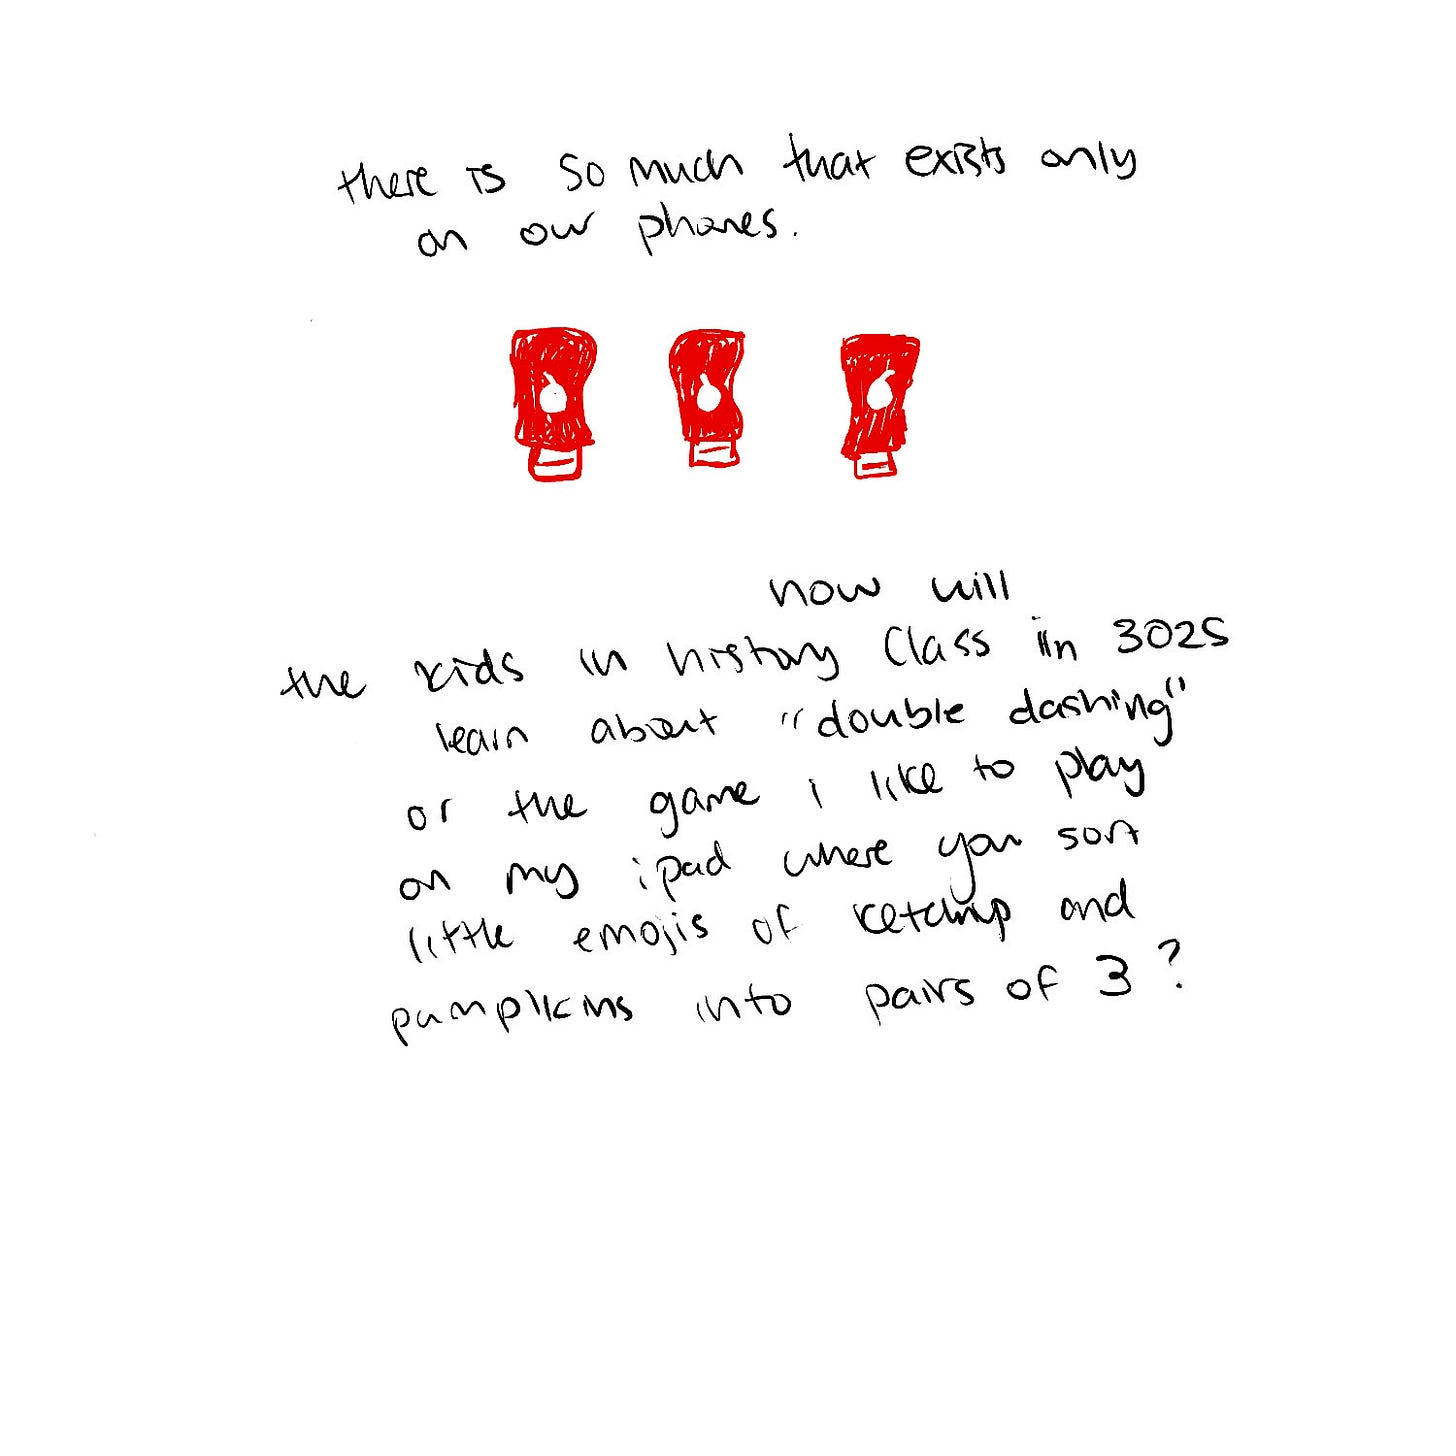 there is so much that exists only
on our phones.
how will
the kids in history class in 3025
learn about "double dashing"
or the game i like to play
on my ipad where you sort
little emojis of ketchup and
pumpkins into pairs of 3?